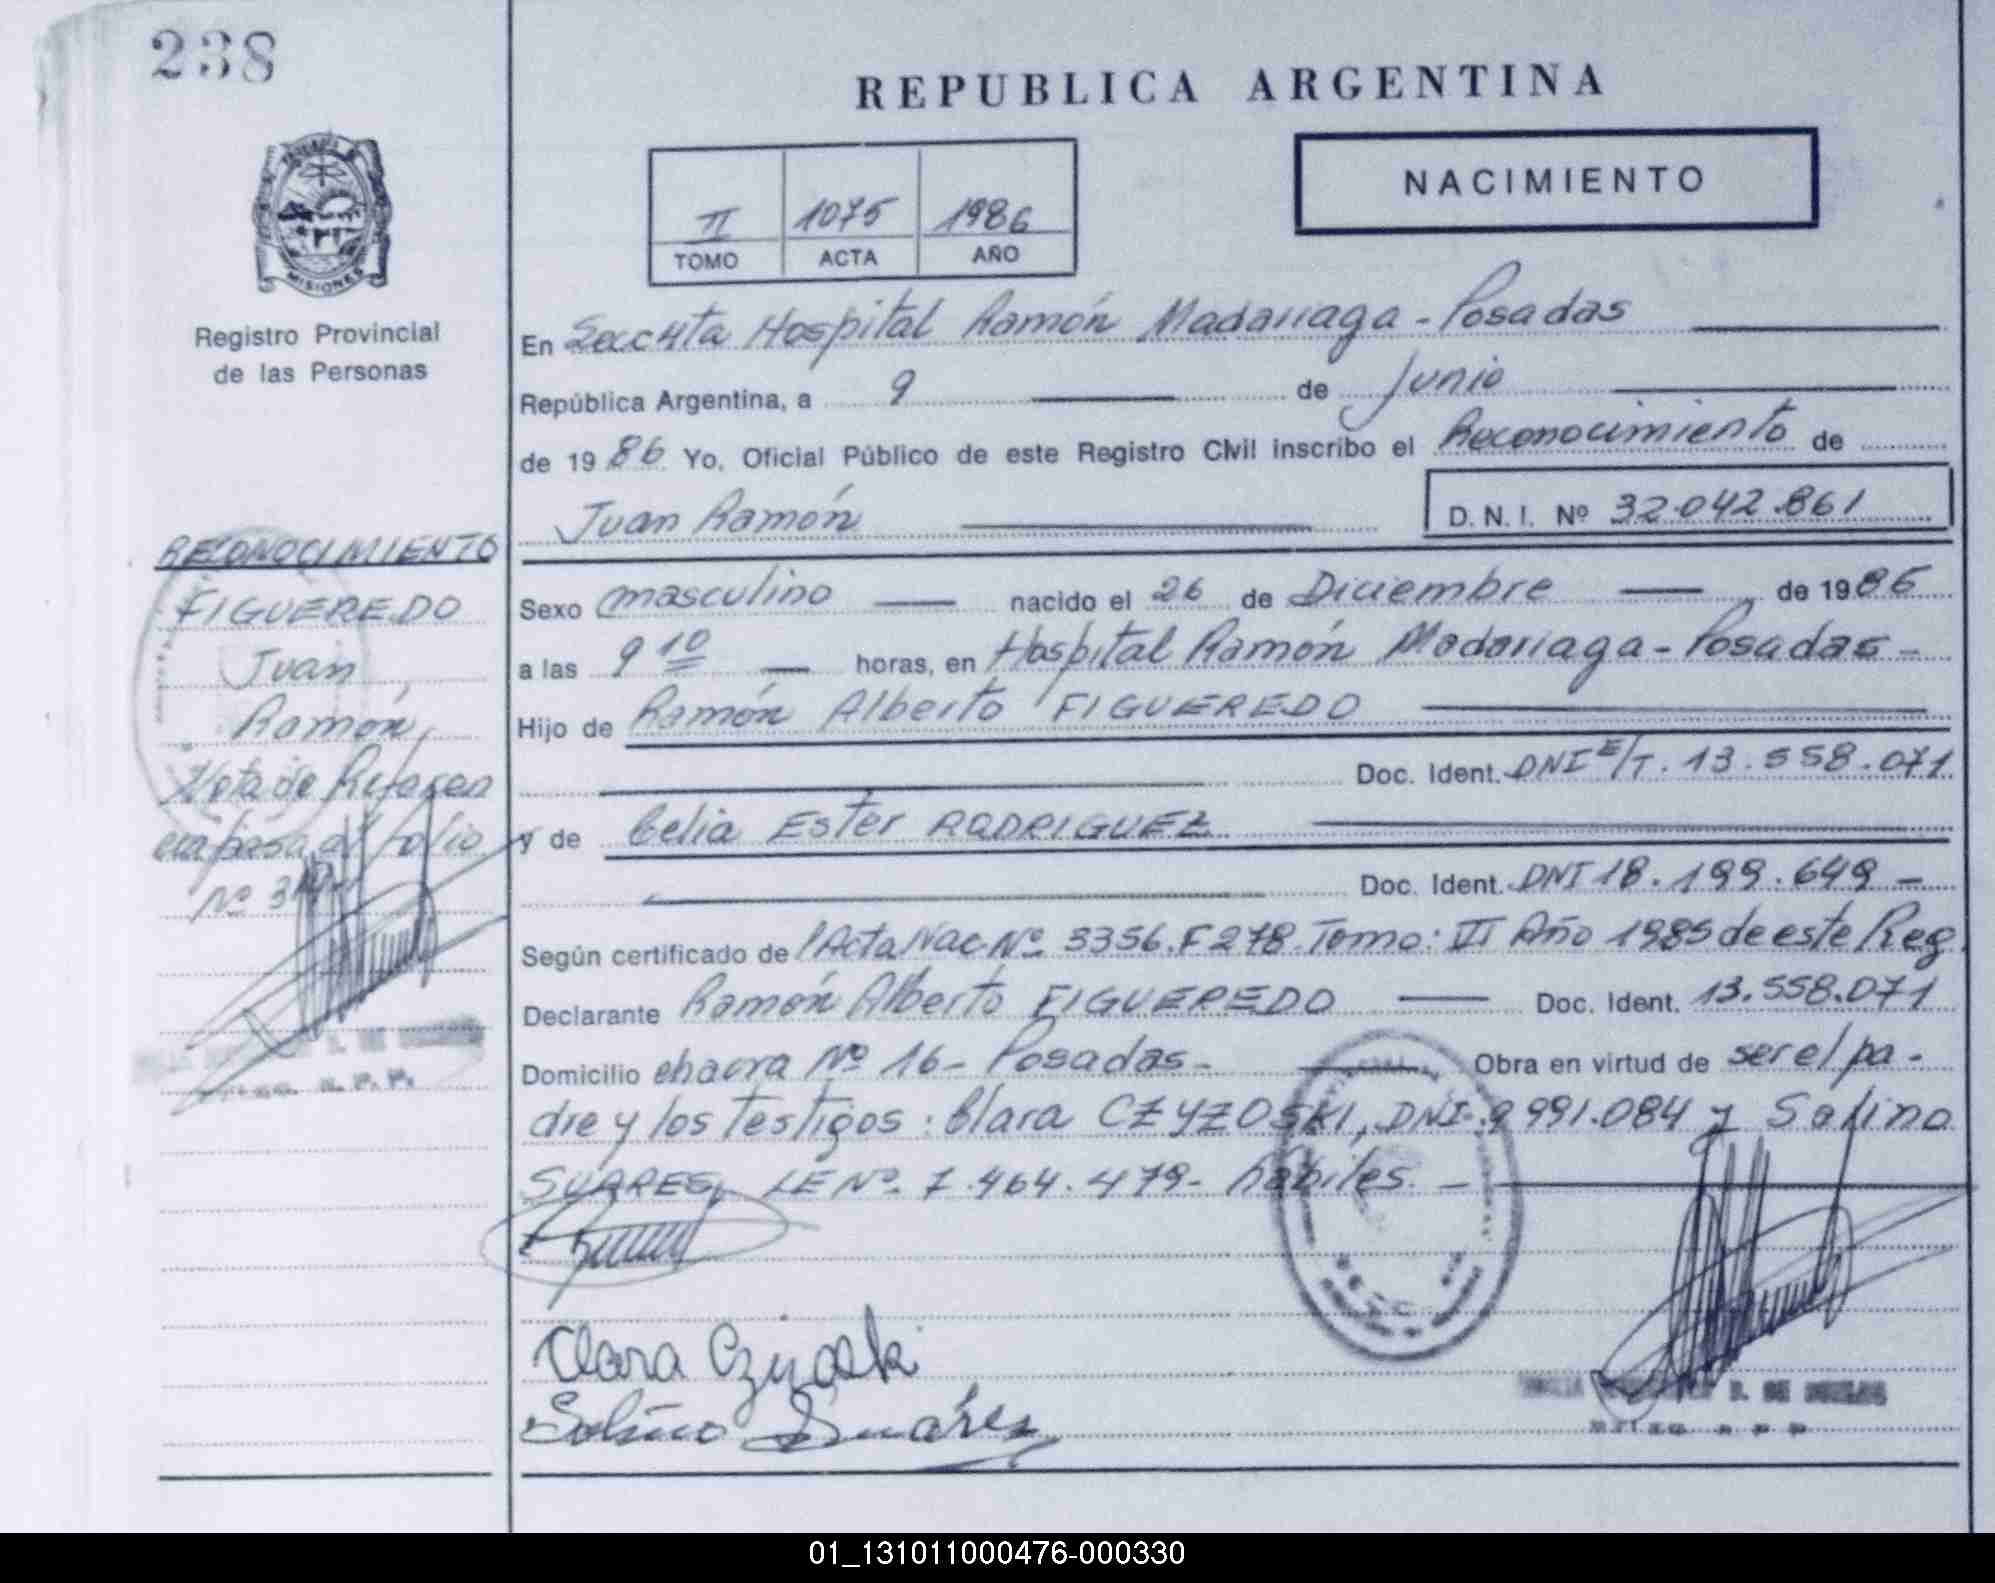 238
REPUBLICA ARGENTINA
MISIONES
Registro Provincial
de las Personas
II 1075 1986
TOMO ACTA AÑO
NACIMIENTO
En Secc 4ta Hospital Ramón Madariaga - Posadas
República Argentina, a 9 de Junio
de 1986 Yo, Oficial Público de este Registro Civil inscribo el Reconocimiento de
Juan Ramón D. N. I. Nº 32.042.861
RECONOCIMIENTO
FIGUEREDO
Juan
Ramón
Nota de Referen
cia pasa al folio
Nº
Sexo masculino nacido el 26 de Diciembre de 1986
a las 9 10 horas, en Hospital Ramón Madariaga - Posadas -
Hijo de Ramón Alberto FIGUEREDO
Doc. Ident. DNI E/T. 13.558.071
y de Celia Ester RODRIGUEZ
Doc. Ident. DNI 18.199.649 -
Según certificado de Acta Nac. Nº 3356. F 278. Tomo: VI Año 1985 de este Reg
Declarante Ramón Alberto FIGUEREDO Doc. Ident. 13.558.071
Domicilio chacra Nº 16 - Posadas - Obra en virtud de ser el pa-
dre y los testigos: Clara CZYZOSKI, DNI 9 991.084 y Sofino
SUARES, LE Nº 7.464.479 - hábiles. -
Clara
Suárez
01_131011000476-000330